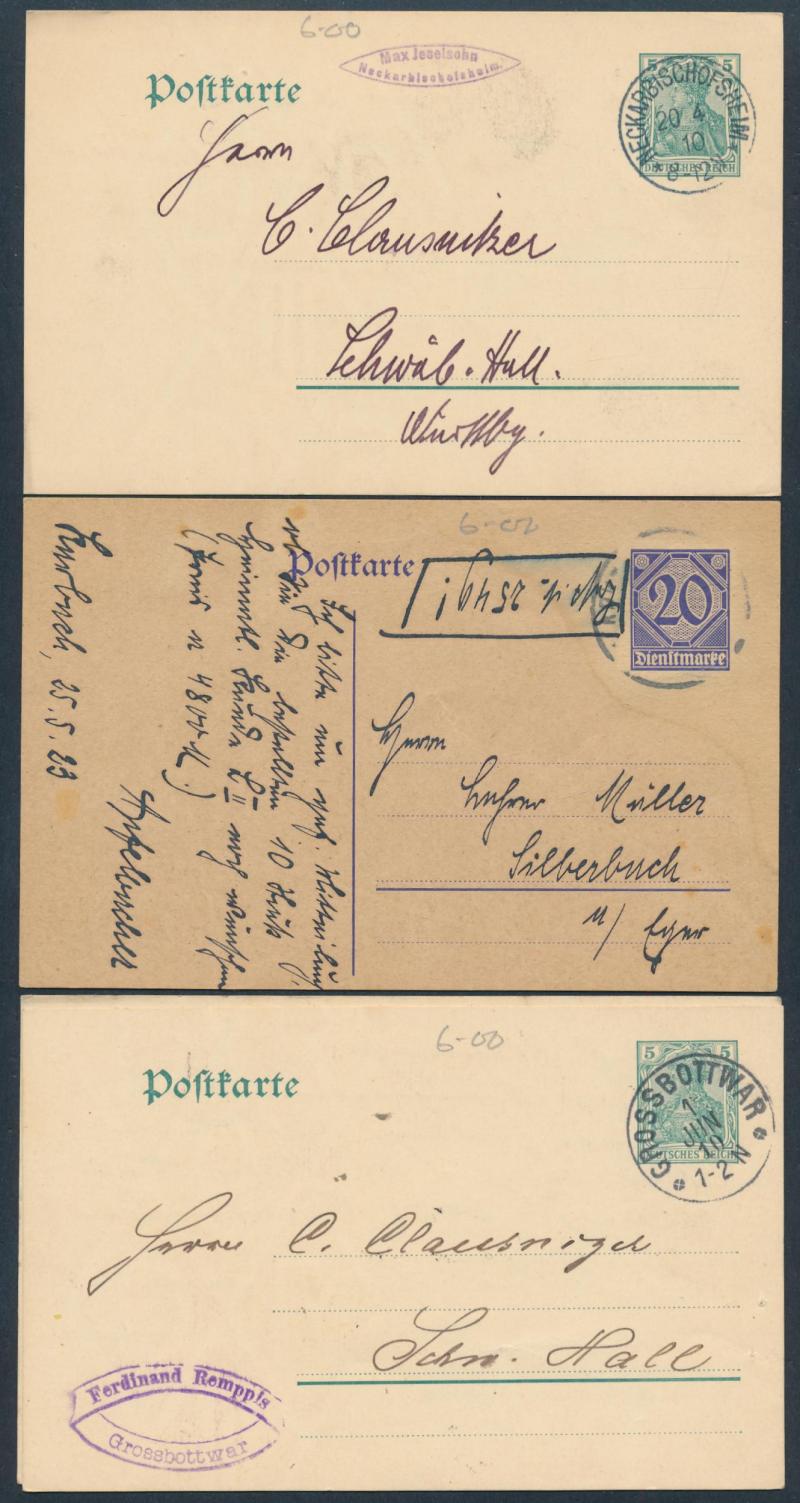 6-00
Max Jeselsohn
Neckarbischofsheim.
Postkarte
5 5
NECKARBISCHOFSHEIM
20 4
10
8-12V
DEUTSCHES REICH
Herrn
C. Clausnitzer
Schwäb. Hall.
Württbg.
6-02
Postkarte
20
Dienstmarke
Ich bitte um gef. Mitteilung,
ob Sie die bestellten 10 Stück
II noch wünschen
(Preis 4800 M.)
25.5.23
Herrn
Lehrer Müller
Silberbach
a/ Eger
6-00
Postkarte
5 5
GROSSBOTTWAR
1
JUN
10
1-2 N
DEUTSCHES REICH
Herrn C. Clausniger
Schw. Hall
Ferdinand Remppis
Grossbottwar